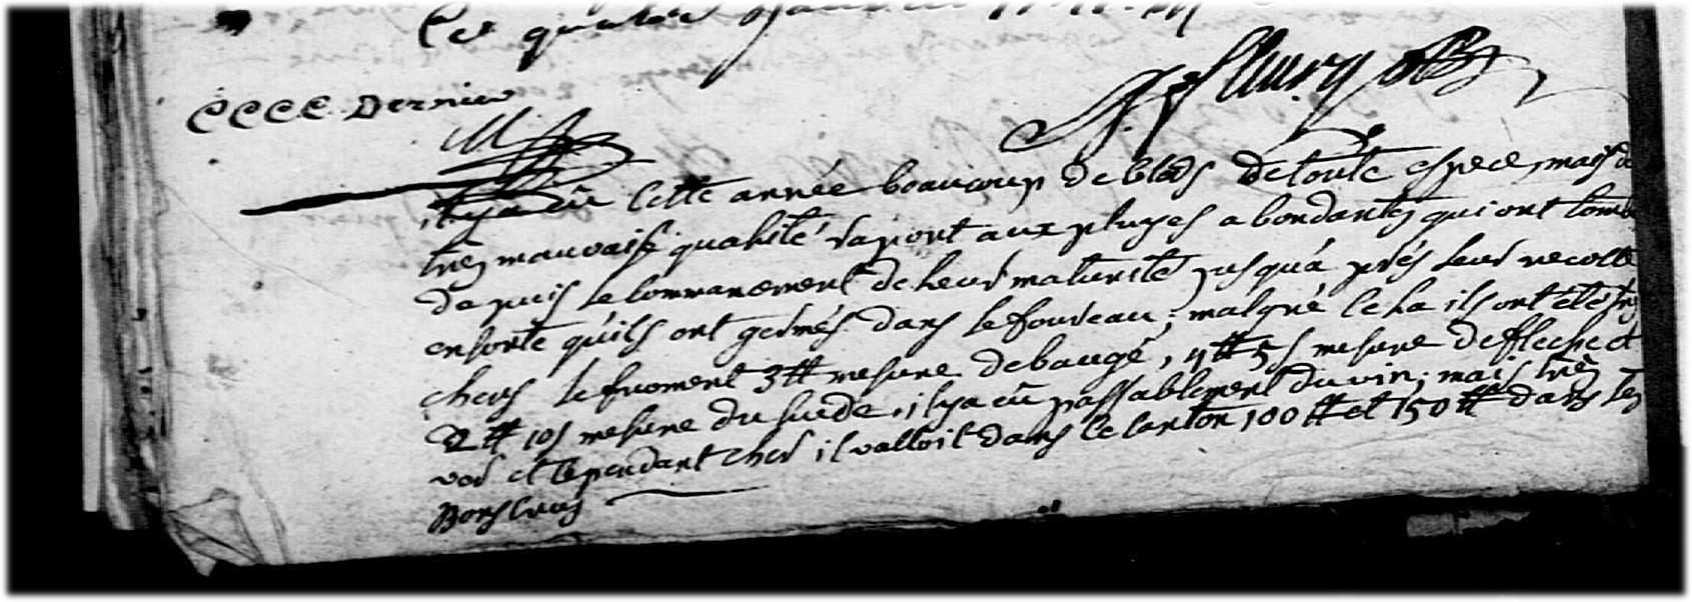 Ce quatre
CCCC. Dernier
il y a eü cette année beaucoup de bleds de toute espece, mais de
très mauvaise qualité raport aux pluyes abondantes qui ont tombé
depuis le commancement de leur maturité jusqu'a près leur recolte
ensorte qu'ils ont germés dans le foureau; malgré cela ils ont été très
chers le froment 3 ₶ mesure de baugé, 4 ₶ 5 s mesure de flleche et
2 ₶ 10 s mesure du lude, il y a eü passablement du vin; mais très
verd et cependant cher il valloit dans ce canton 100 ₶ et 150 ₶ dans les
Bons crus